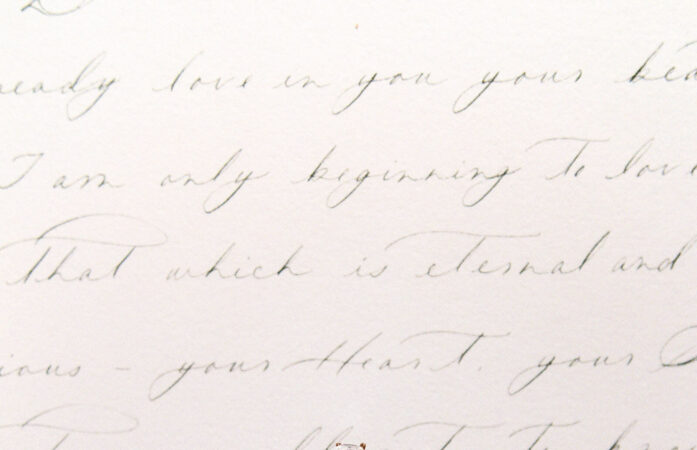 ready love in you your bea
I am only beginning to love
that which is eternal and
ious - your Heart. your S